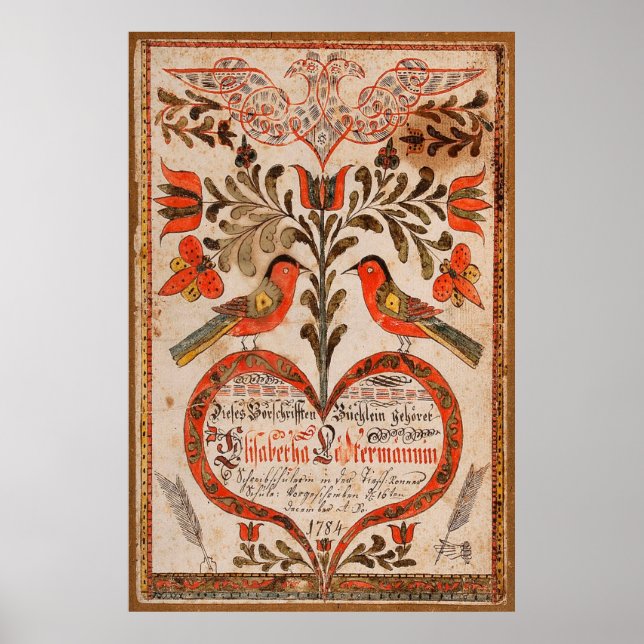 Dieses Vorschrifften Büchlein gehöret
Elisabetha
Schreibschülerin in der
Schule: Vorgeschrieben d. 16ten
December A. Do.
1784